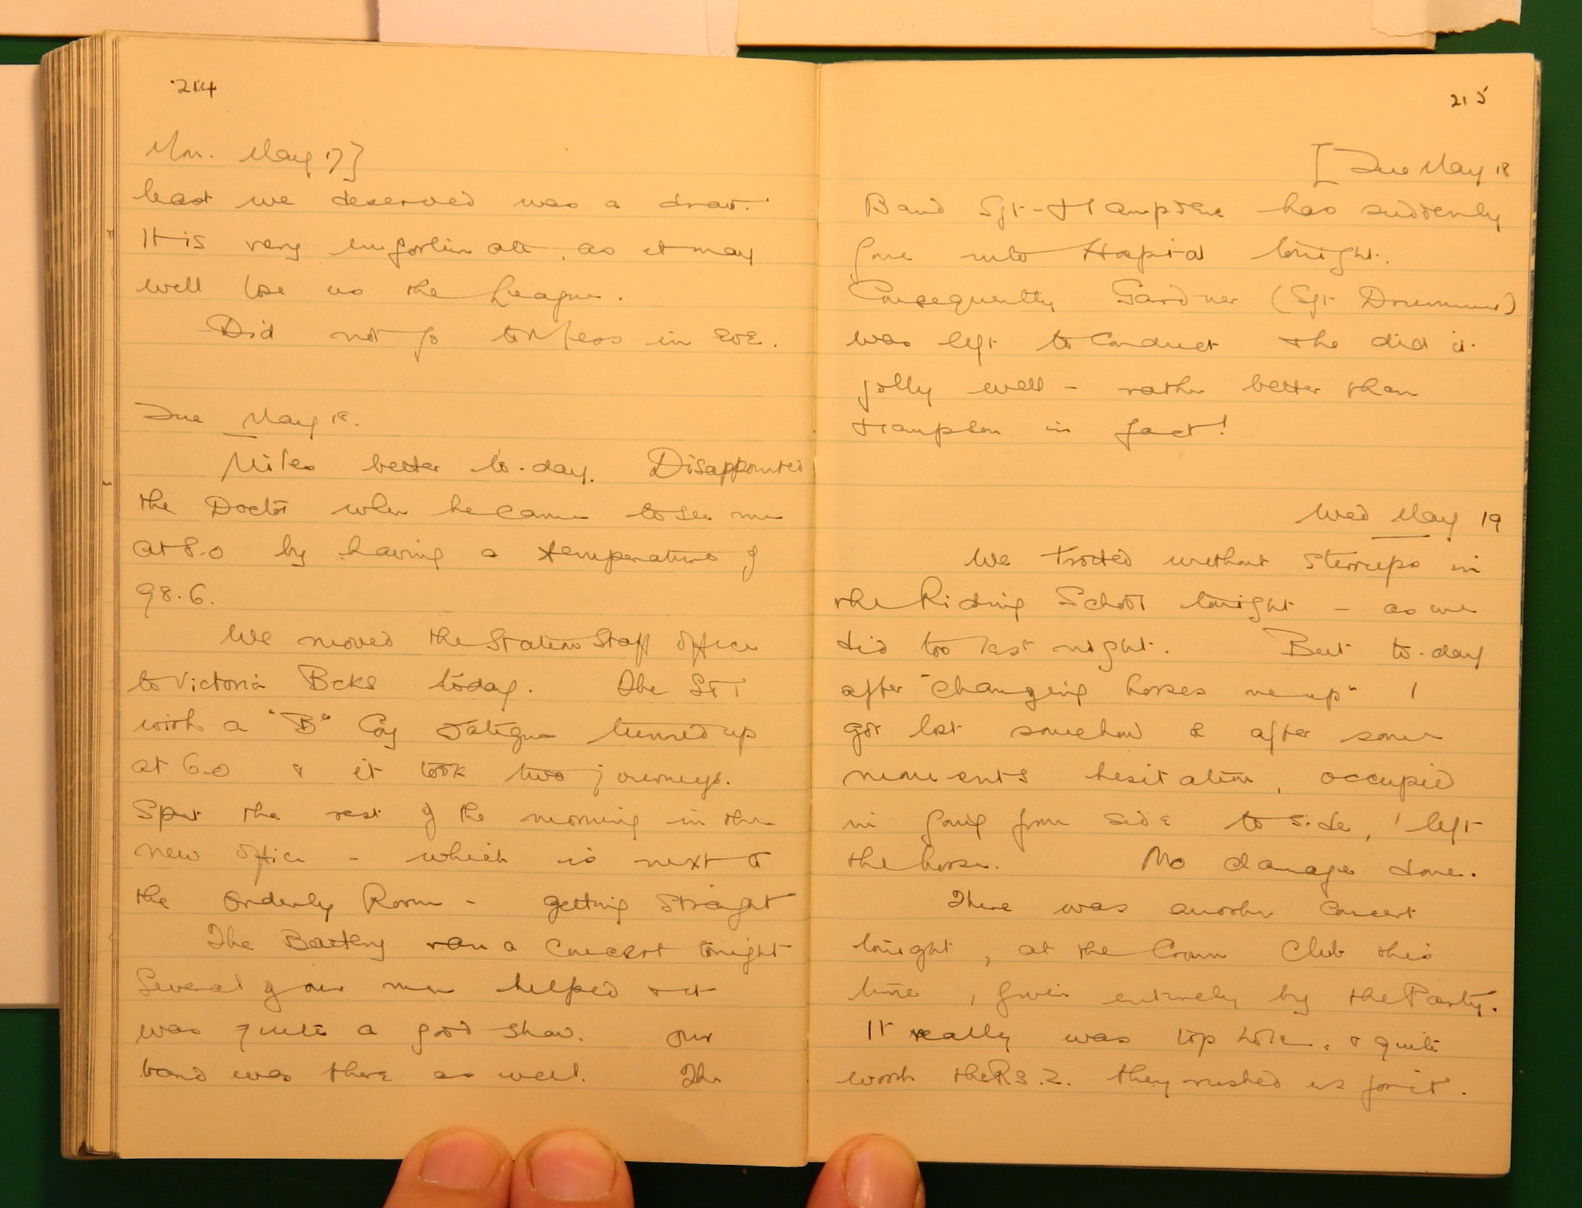 214
Mon. May 17]
least we deserved was a draw.
It is very unfortunate, as it may
well lose us the League.
Did not go to Mess in eve.
Tue May 18.
Miles better to-day. Disappointed
the Doctor when he came to see me
at 8.0 by having a temperature of
98.6.
We moved the Station Staff office
to Victoria Bcks today. One
with a "B" Coy fatigue turned up
at 6.0 & it took two journeys.
Spent the rest of the morning in the
new office - which is next to
the Orderly Room - getting straight
The Battery ran a concert tonight
Several of our men helped & it
was quite a good show. Our
band was there as well. The
215
[Tue May 18
Band Sgt-Hampden has suddenly
gone into Hospital tonight.
Consequently Gardner (Sgt Drummer)
was left to conduct & he did it
jolly well - rather better than
in fact!
Wed May 19
We trotted without sterrups in
the Riding School tonight - as we
did too last night. But to-day
after "changing horses
got lost somehow & after some
moments hesitation, occupied
in going from side to side, I left
the horse. No damage done.
There was another concert
tonight, at the Crown Club this
time, given entirely by the Party.
It really was top hole, & quite
worth the Rs.2. they rushed us for it.